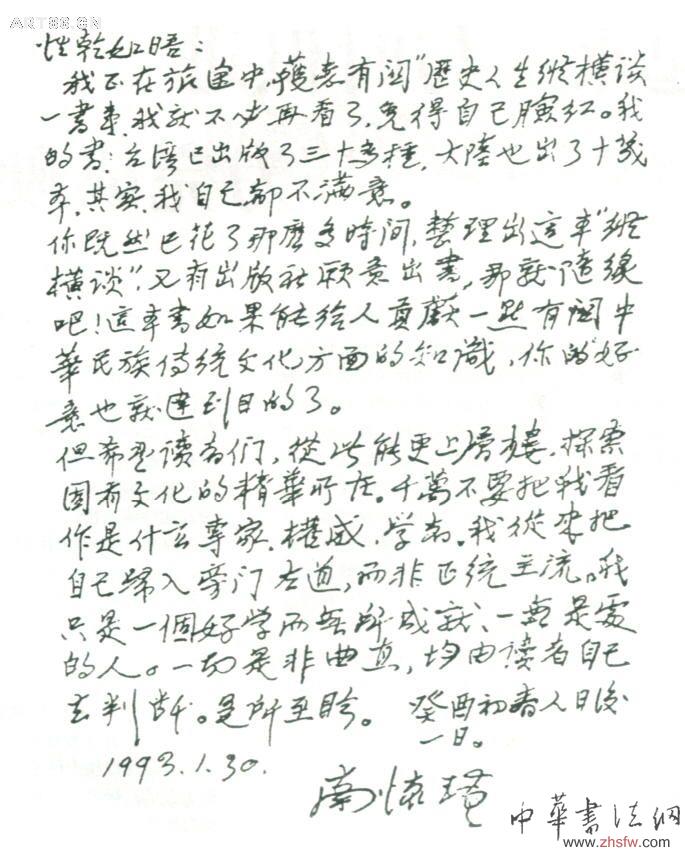 ART86.CN
性乾如晤：
我正在旅途中，獲悉有関"歷史人生纵横谈
一書事，我就不必再看了，免得自己臉红。我
的書，台湾已出版了三十多種，大陸也出了十几
本，其实，我自己都不滿意。
你既然已花了那麽多時间，整理出這本"纵
横談"，又有出版社願意出書，那就隨緣
吧！這本書如果能给人貢獻一點有関中
華民族傳統文化方面的知識，你的"好
意也就達到目的了。
但希望读者们，從此能更上層樓，探索
固有文化的精華所在。千萬不要把我看
作是什么專家、權威、学者。我從來把
自己歸入旁门左道，而非正统主流。我
只是一個好学而無所成就、一無是處
的人。一切是非曲直，均由读者自己
去判断。是所至盼。 癸酉初春人日後
一日。
1993.1.30.
南懷瑾
中華書法網
www.zhsfw.com